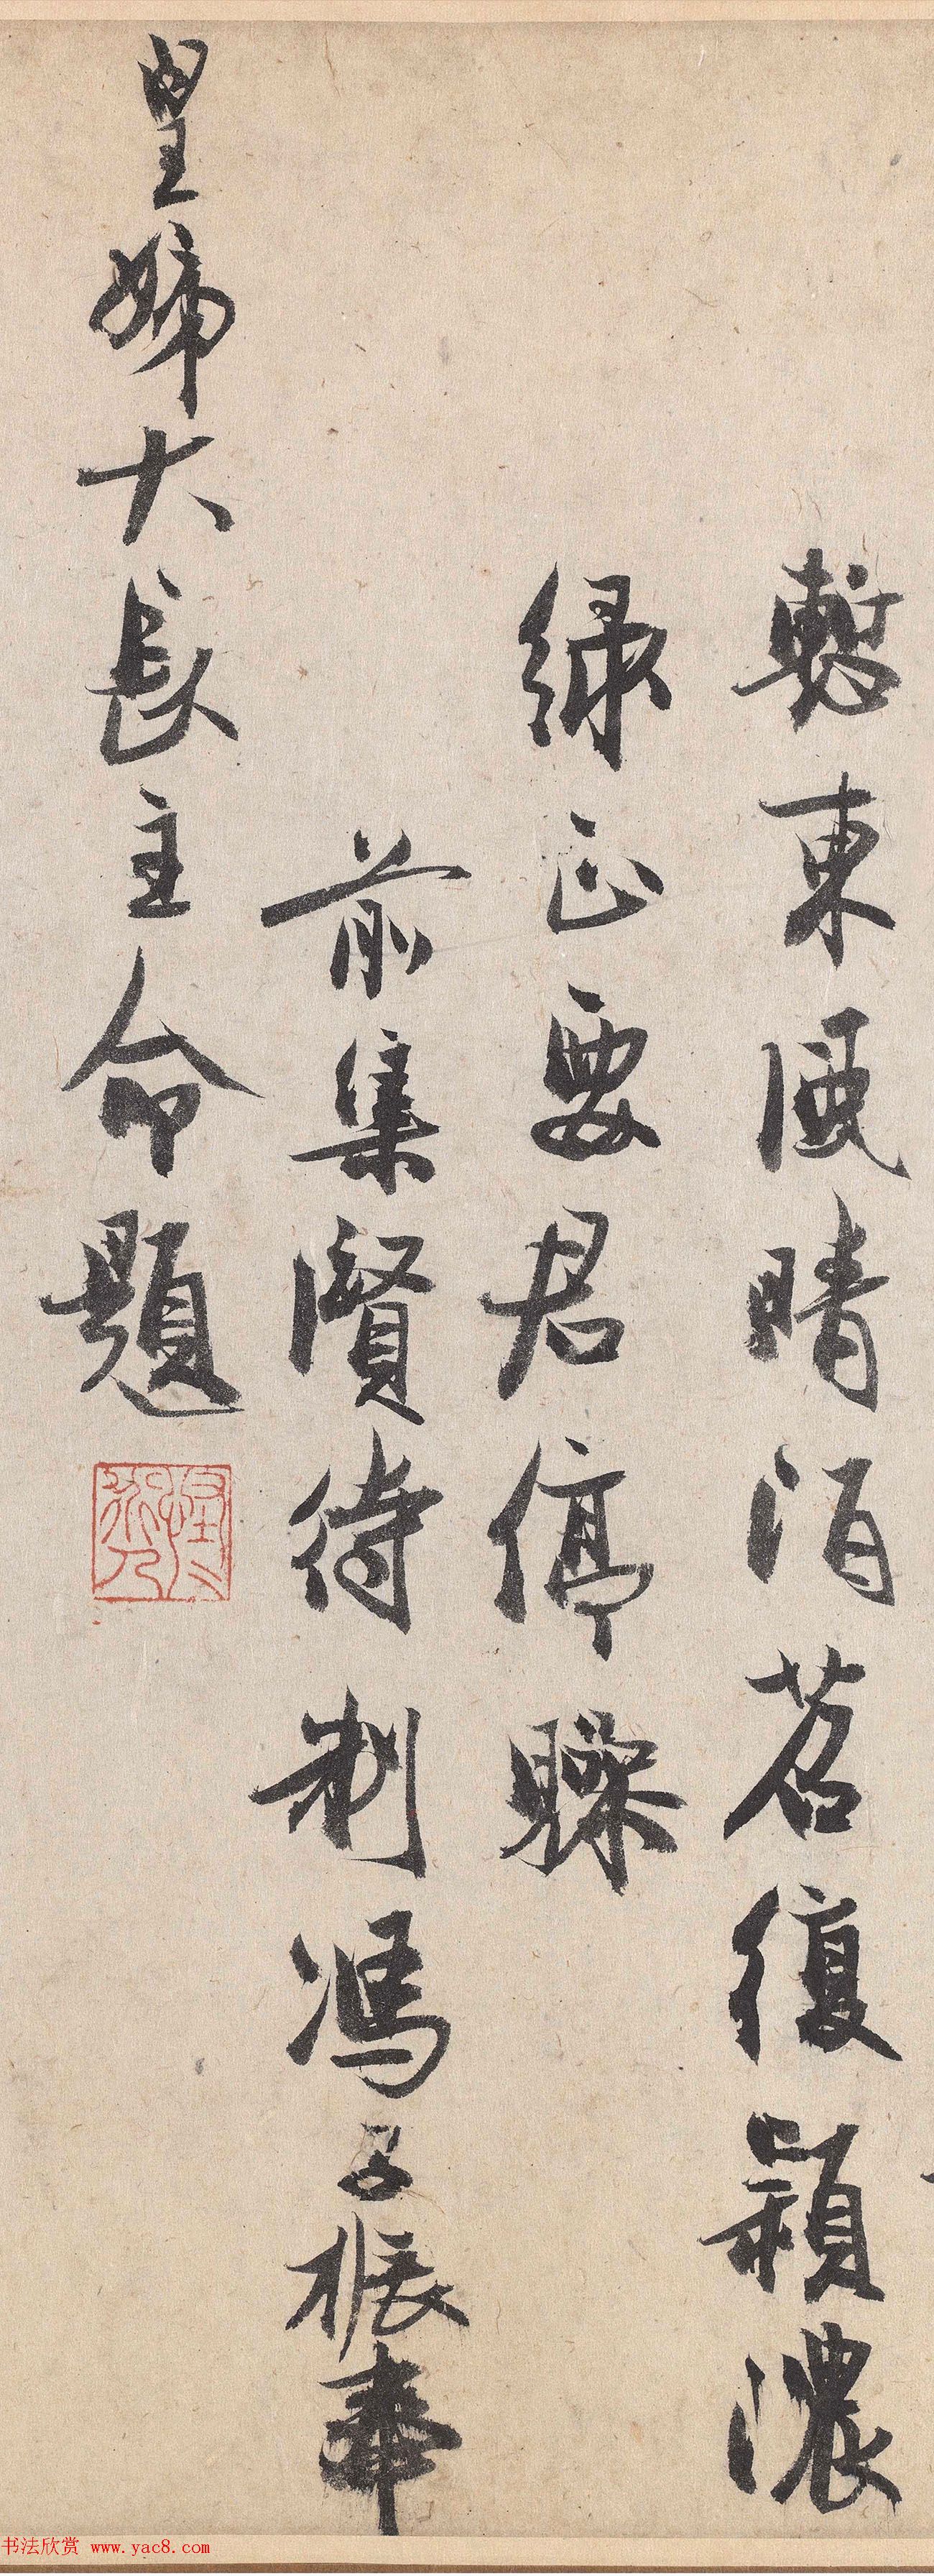 暫東風晴陌苕復穎濃
綠正要君停驂
前集賢待制馮子振奉
皇姊大長主命題
书法欣赏 www.yac8.com